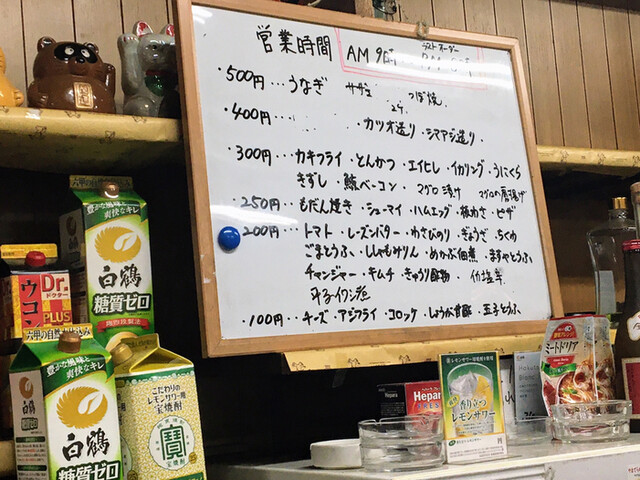 営業時間 AM 9時
ラストオーダー
・500円…うなぎ サザエ つぼ焼
・400円 カツオ造り・シマアジ造り
・300円…カキフライ・とんかつ・エイヒレ・イカリング・うにくら
きずし・鯨ベーコン・マグロ漬け マグロの唐揚げ
・250円…もだん焼き・シューマイ・ハムエッグ・板わさ・ピザ
・200円…トマト・レーズンバター・わさびのり・ぎょうざ・ちくわ
ごまとうふ・ししゃもみりん・めかぶ佃煮・ますやとうふ
チャンジャー・キムチ・きゅうり酢物・イカ塩辛
・100円…チーズ・アジフライ・コロッケ・しょうが甘酢・玉子とうふ
豊かな風味と爽快なキレ
白鶴
糖質ゼロ
Dr.
ドクター
ウコン
PLUS
豊かな風味と
爽快なキレ
白鶴
糖質ゼロ
こだわりの
レモンサワー用
宝焼酎
寶
Hepara
Hepar
香り立つ
レモンサワー
ミートドリア